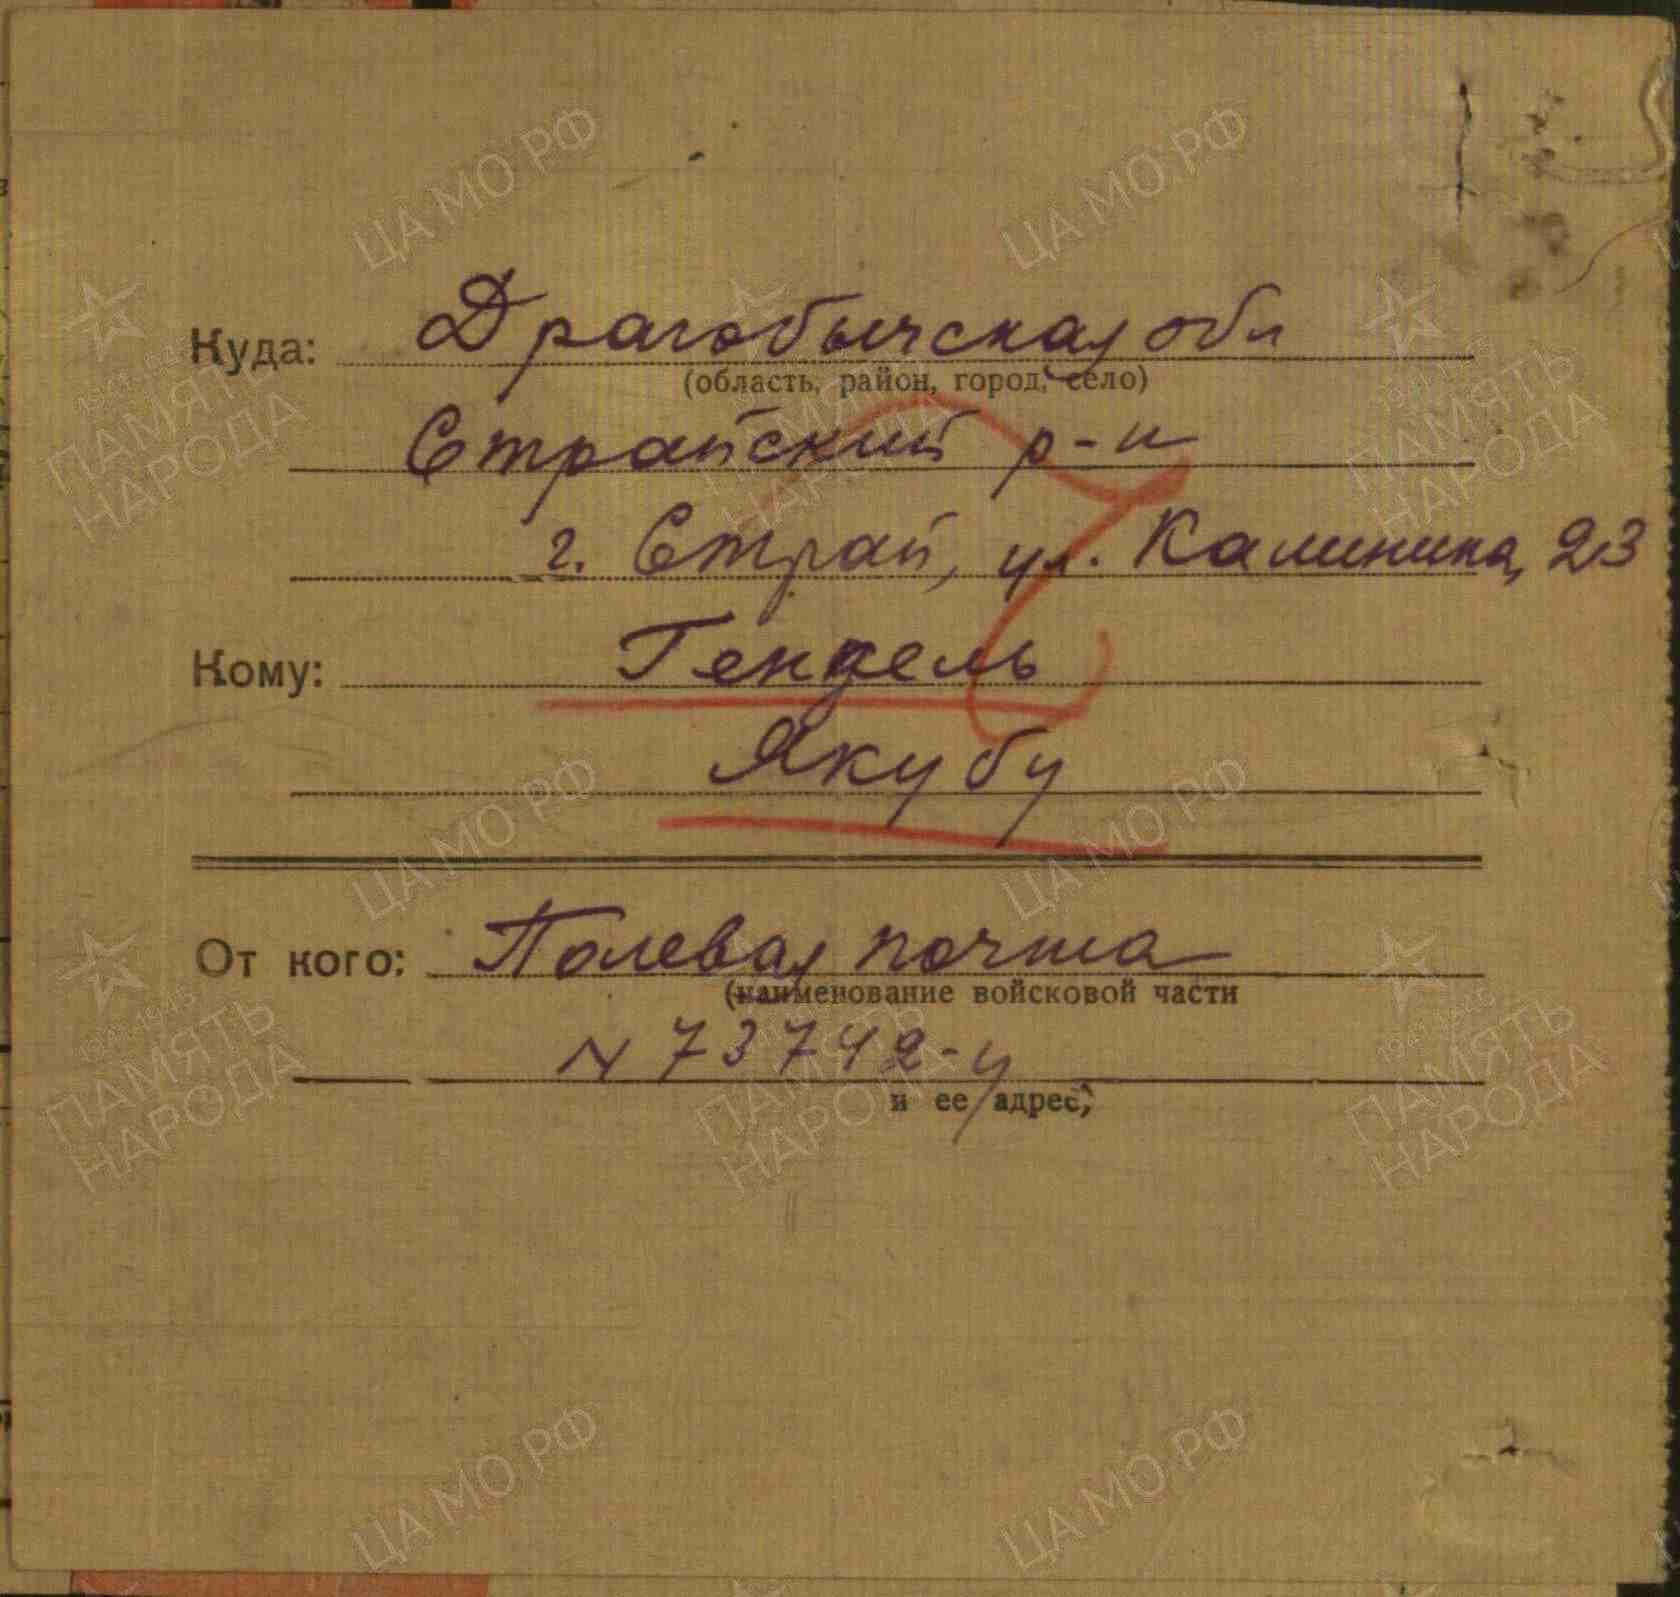 Куда: Драгобычская обл
(область, район, город, село)
Страйский р-н
г. Страй, ул. Калинина, 23
Кому: Гендель
Якубу
От кого: Полевая почта
(наименование войсковой части
N 73742-у
и ее адрес)
ЦА МО РФ
ПАМЯТЬ
НАРОДА